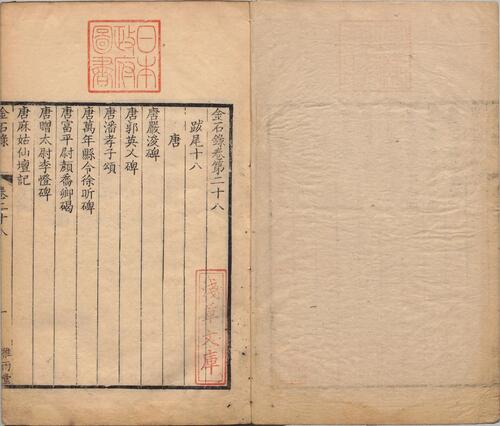 金石錄卷第二十八
跋尾十八
唐
唐嚴浚碑
唐郭英乂碑
唐潘孝子頌
唐萬年縣令徐昕碑
唐富平尉顏喬卿碣
唐贈太尉李憕碑
唐麻姑仙壇記
金石錄
卷二十八
一
雅雨堂
日本
政府
圖書
淺草文庫